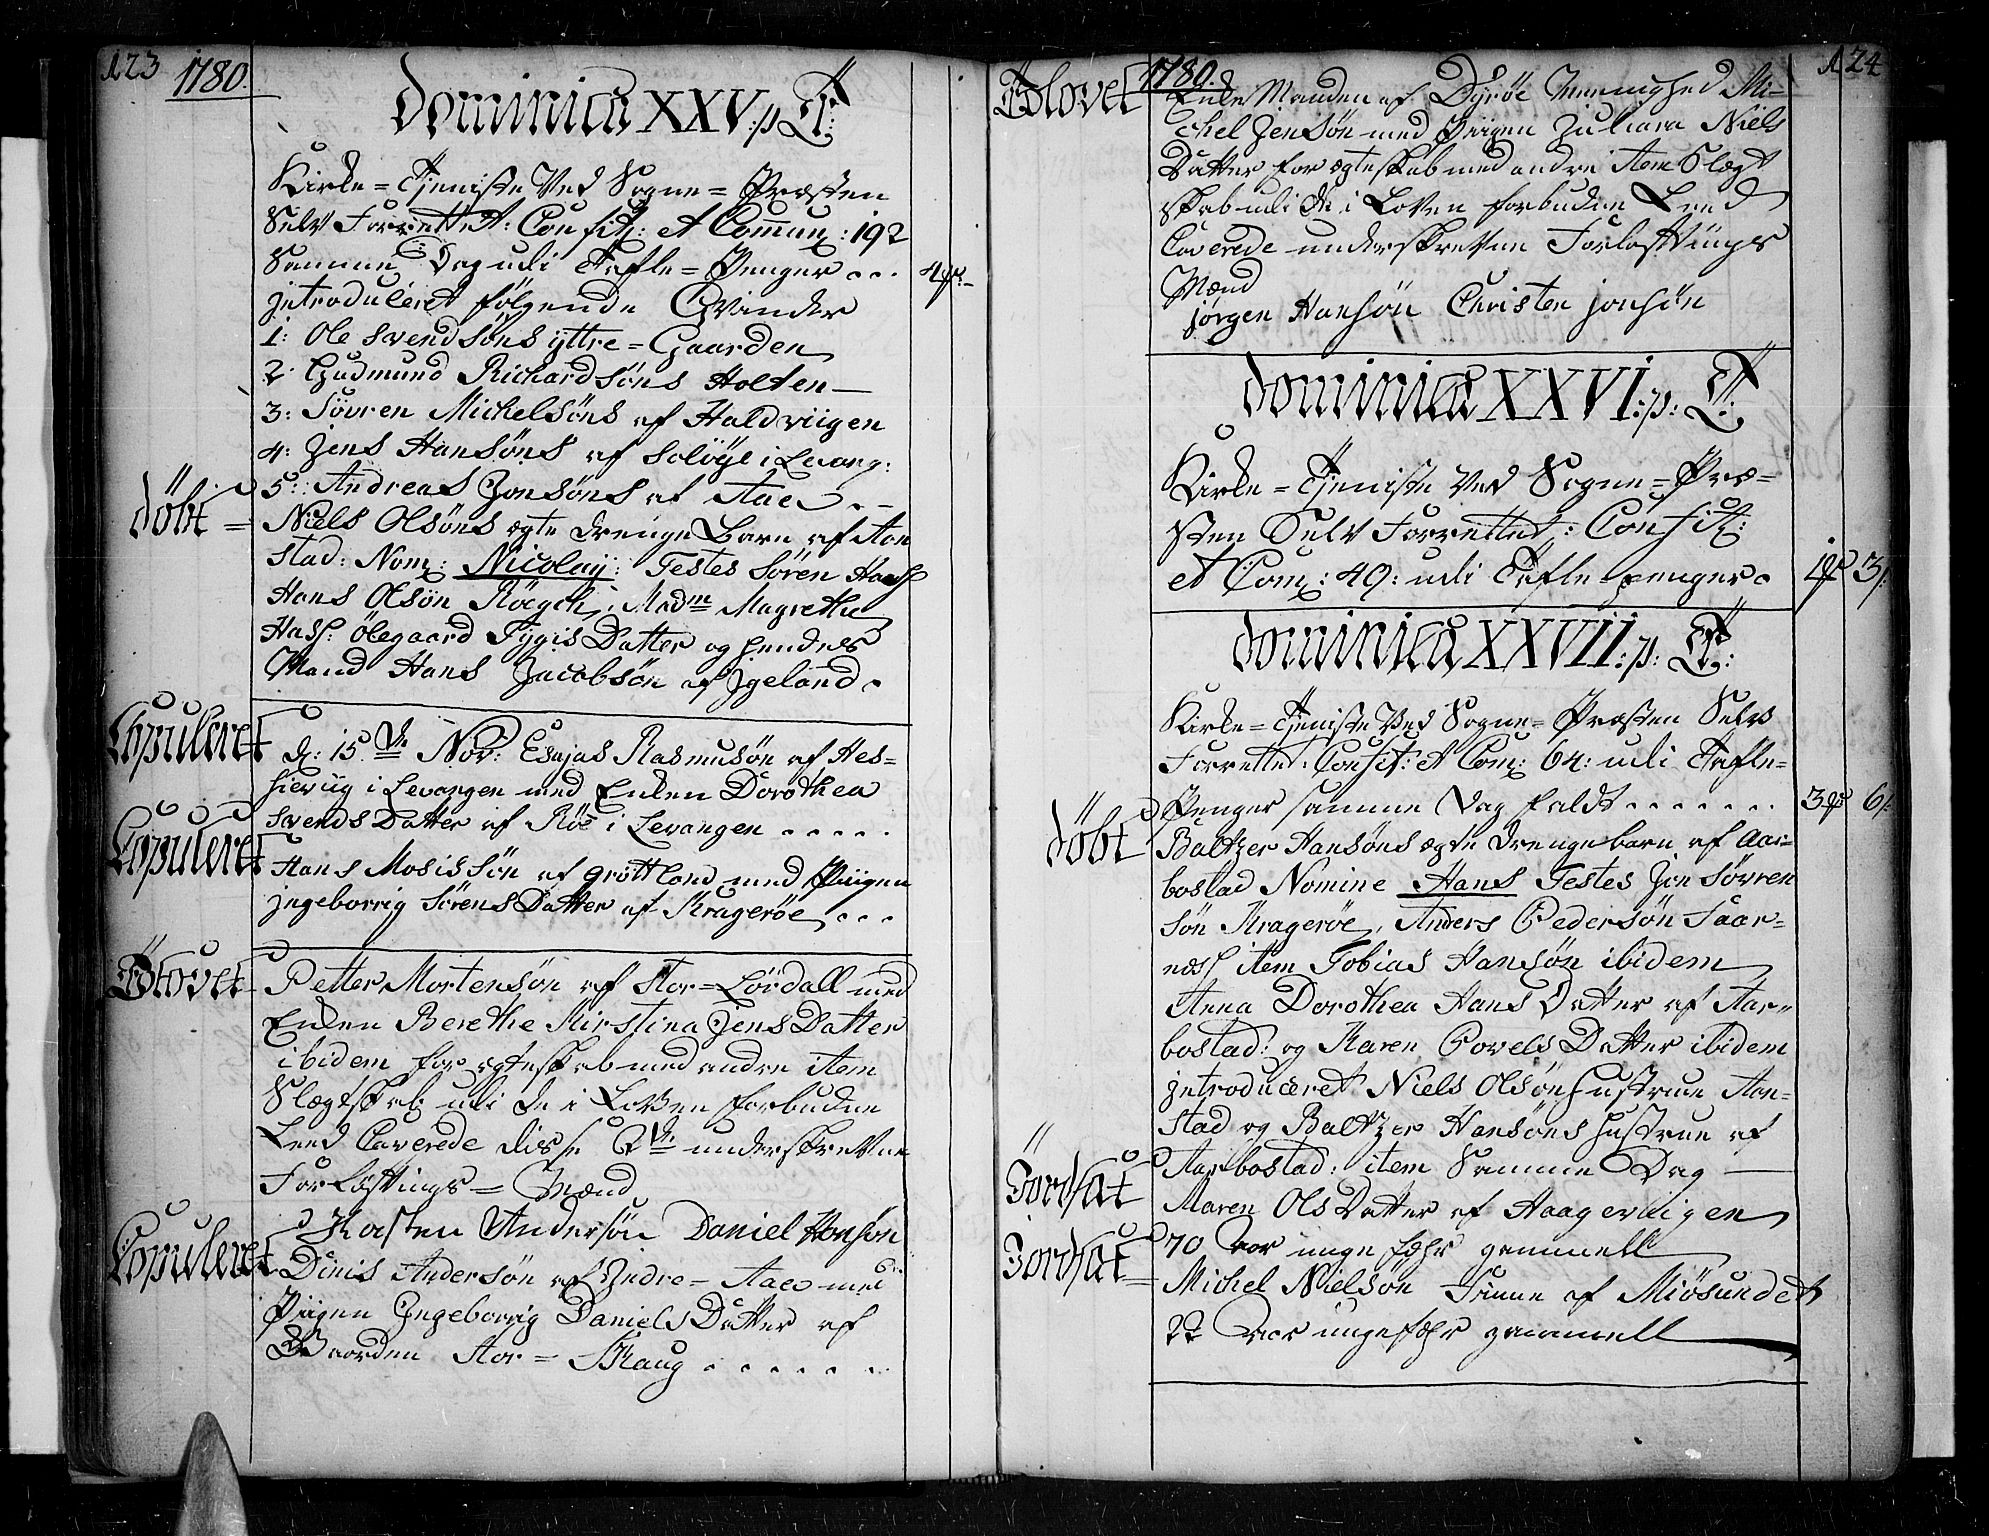 123
1780.
Dominica XXV: p: Tr:
Kirke-Tjeniste Ved Sogne-Præsten
Selv Forrettet: Confit: et Commun: 192
Samme Dag udi Tafle-Penger...
jntroduceret følgende Qvinder
1: Ole Svendsøns yttre-Gaarden
2: Gudmund Richardsøns Holten
3: Sövren Michelsøns af Haldviigen
4: Jens Hansøns af Soløye i Levang:
5: Andreas Jonsøns af Aae..
döbt
Niels Olsøns ægte drenge Barn af Aan
stad: Nom: Nicolay: Testes Søren Hass
Hans Olsøn Röegch, Madm Magrethe
Hass: Ölegaard Tygis Datter og hendes
Mand Hans Jacobsøn af Jgeland.
Copuleret
d: 15de Nov: Esajas Rasmusøn af Hes-
hievig i Levangen med Enken Dorothea
Svends Datter af Röe i Levangen.....
Copuleret
Hans Mosissön af gröttland med Piigen
jngeborrig Sörens Datter af Kragerøe...
Trolovet
Petter Mortensøn af Stor-Lördall med
Enken Berethe Kirstina Jens Datter
ibidem for ægteskab med andre item
Slægtskab udi de i Loven forbudne
Leed Caverede disse 2de underskrevne
Forloftings-Mænd
Kasten Andersön Daniel Hansøn
Copuleret
Dinis Andersøn af Jndre-Aae med
Piigen Jngeborrig Daniels Datter af
Gaarden Stor-Skaug......
124
1780.
Trolovet
Enke Manden af Dyröe Menighed Mi-
chel Jensøn med Piigen Juliana Niels
Datter for ægteskab med andre item Slægt
skab udi de i Loven forbudne Leed
Caverede underskrevne Forloftings
Mænd
jörgen Hansön Christen jonsön
Dominica XXVI: p: Tr:
Kirke-Tjeniste Ved Sogne-Præ-
sten Selv Forrettet: Confit:
et Com: 49: udi Tafle-penger.
Dominica XXVII: p: Tr:
Kirke-Tjeniste Ved Sogne-Præsten Selv
Forrettet: Confit: et Com: 64: udi Tafle-
Penger samme Dag faldt.......
döbt
Baltzer Hansøns ægte drenge barn af Aar-
bostad Nomine Hans Testes Jon Sövren
søn Kragerøe, Anders Pedersøn Faar-
næss item Tobias Hansøn ibidem
Anna Dorothea Hans Datter af Aar-
bostad: og Karen Povels Datter ibidem
jntroduceret Niels Olsøns Hustrue Aan-
stad og Baltzer Hansøns Hustrue af
Aarbostad: item Samme Dag
Jordsat
Maren Ols Datter af Haageviigen
70 aar unge fæhr gammell
Jordsat
Michel Nielsön Finne af Miösundet
22 aar ungefæhr gammell